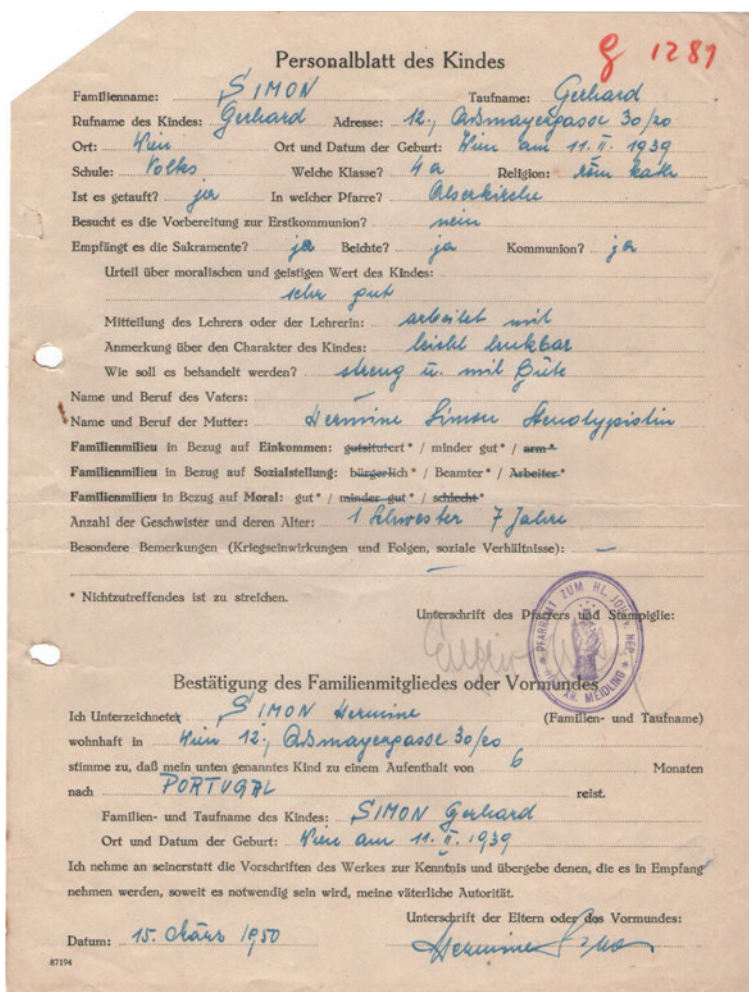 Personalblatt des Kindes
g 1281
Familienname: SIMON Taufname: Gerhard
Rufname des Kindes: Gerhard Adresse: 12., Aßmayergasse 30/20
Ort: Wien Ort und Datum der Geburt: Wien am 11. II. 1939
Schule: Volks Welche Klasse? 4a Religion: röm kath
Ist es getauft? ja In welcher Pfarre? Alserkirche
Besucht es die Vorbereitung zur Erstkommunion? nein
Empfängt es die Sakramente? ja Beichte? ja Kommunion? ja
Urteil über moralischen und geistigen Wert des Kindes:
sehr gut
Mitteilung des Lehrers oder der Lehrerin: arbeitet mit
Anmerkung über den Charakter des Kindes: leicht lenkbar
Wie soll es behandelt werden? streng u. mit Güte
Name und Beruf des Vaters:
Name und Beruf der Mutter: Hermine Simon Stenotypistin
Familienmilieu in Bezug auf Einkommen: gutsituiert* / minder gut* / arm*
Familienmilieu in Bezug auf Sozialstellung: bürgerlich* / Beamter* / Arbeiter*
Familienmilieu in Bezug auf Moral: gut* / minder gut* / schlecht*
Anzahl der Geschwister und deren Alter: 1 Schwester 7 Jahre
Besondere Bemerkungen (Kriegseinwirkungen und Folgen, soziale Verhältnisse): —
—
* Nichtzutreffendes ist zu streichen.
Unterschrift des Pfarrers und Stampiglie:
PFARRAMT ZUM HL. JOH. V. NEP. * XII. MEIDLING *
Bestätigung des Familienmitgliedes oder Vormundes
Ich Unterzeichneter SIMON Hermine (Familien- und Taufname)
wohnhaft in Wien 12., Aßmayergasse 30/20
stimme zu, daß mein unten genanntes Kind zu einem Aufenthalt von 6 Monaten
nach PORTUGAL reist.
Familien- und Taufname des Kindes: SIMON Gerhard
Ort und Datum der Geburt: Wien am 11. II. 1939
Ich nehme an seinerstatt die Vorschriften des Werkes zur Kenntnis und übergebe denen, die es in Empfang
nehmen werden, soweit es notwendig sein wird, meine väterliche Autorität.
Unterschrift der Eltern oder des Vormundes:
Datum: 15. März 1950 Hermine Simon
87194